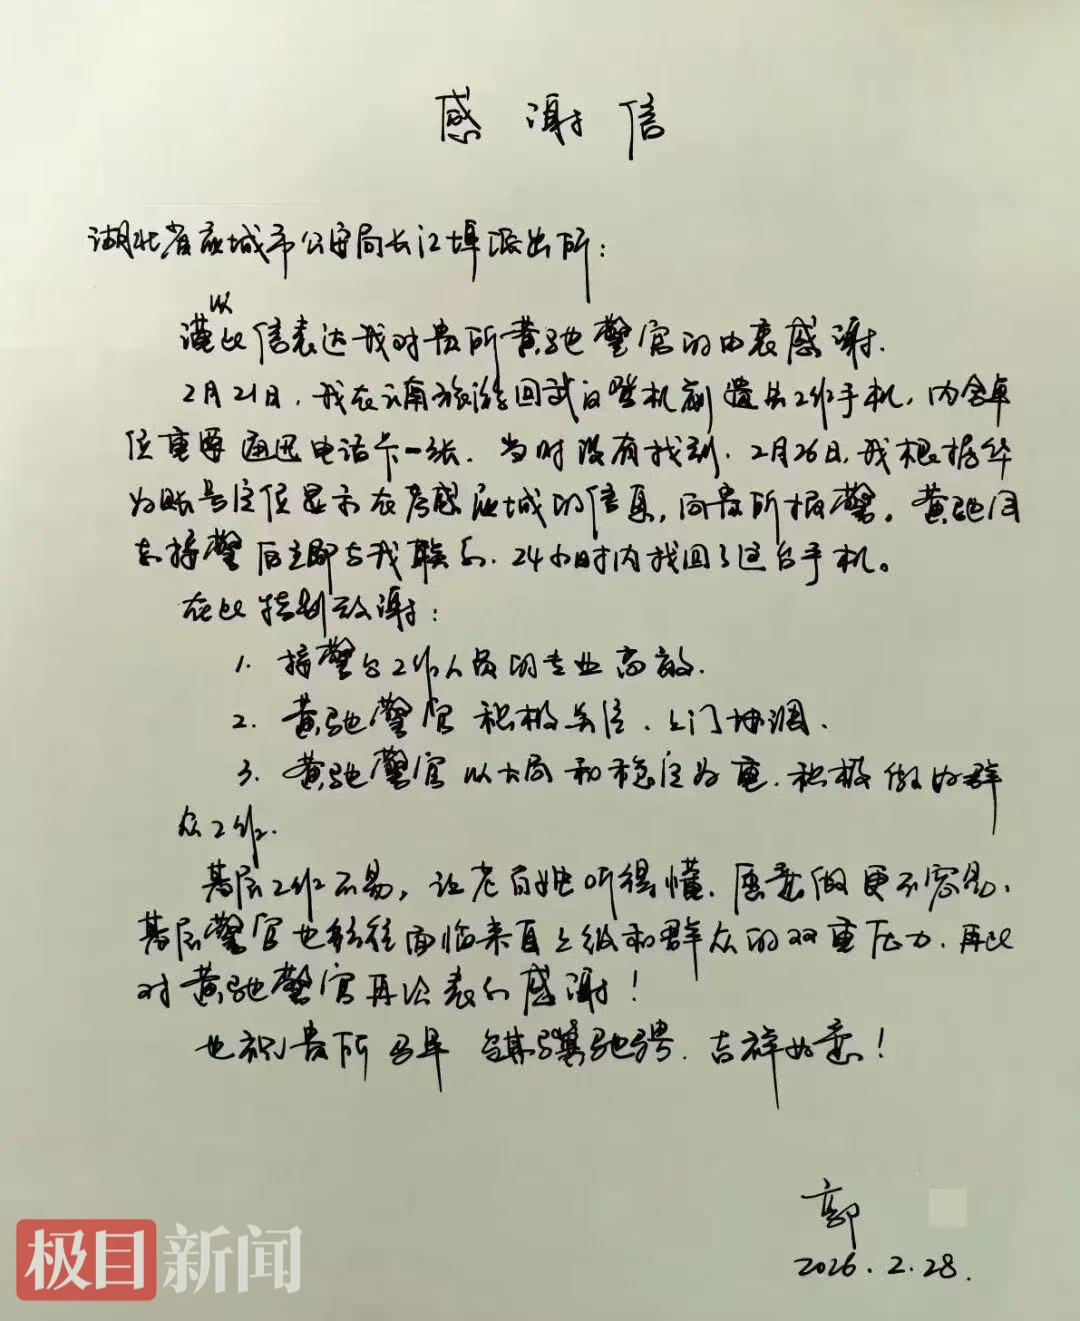 感谢信
湖北省应城市公安局长江埠派出所：
谨以此信表达我对贵所黄驰警官的由衷感谢.
2月21日，我在云南旅游回武汉登机前遗失工作手机，内含单
位重要通迅电话卡一张. 当时没有找到. 2月26日，我根据华
为账号定位显示在孝感应城的信息，向贵所报警。黄驰同
志接警后立即与我联系. 24小时内找回了这台手机。
在此特别致谢：
1. 接警台工作人员的专业高效.
2. 黄驰警官积极关注、上门协调.
3. 黄驰警官以大局和稳定为重. 积极做好群
众工作.
基层工作不易，让老百姓听得懂、愿意做更不容易.
基层警官也往往面临来自上级和群众的双重压力. 再此
对黄驰警官再次表示感谢！
也祝贵所马年 骐骥驰骋. 吉祥如意！
郭
2026.2.28.
极目新闻